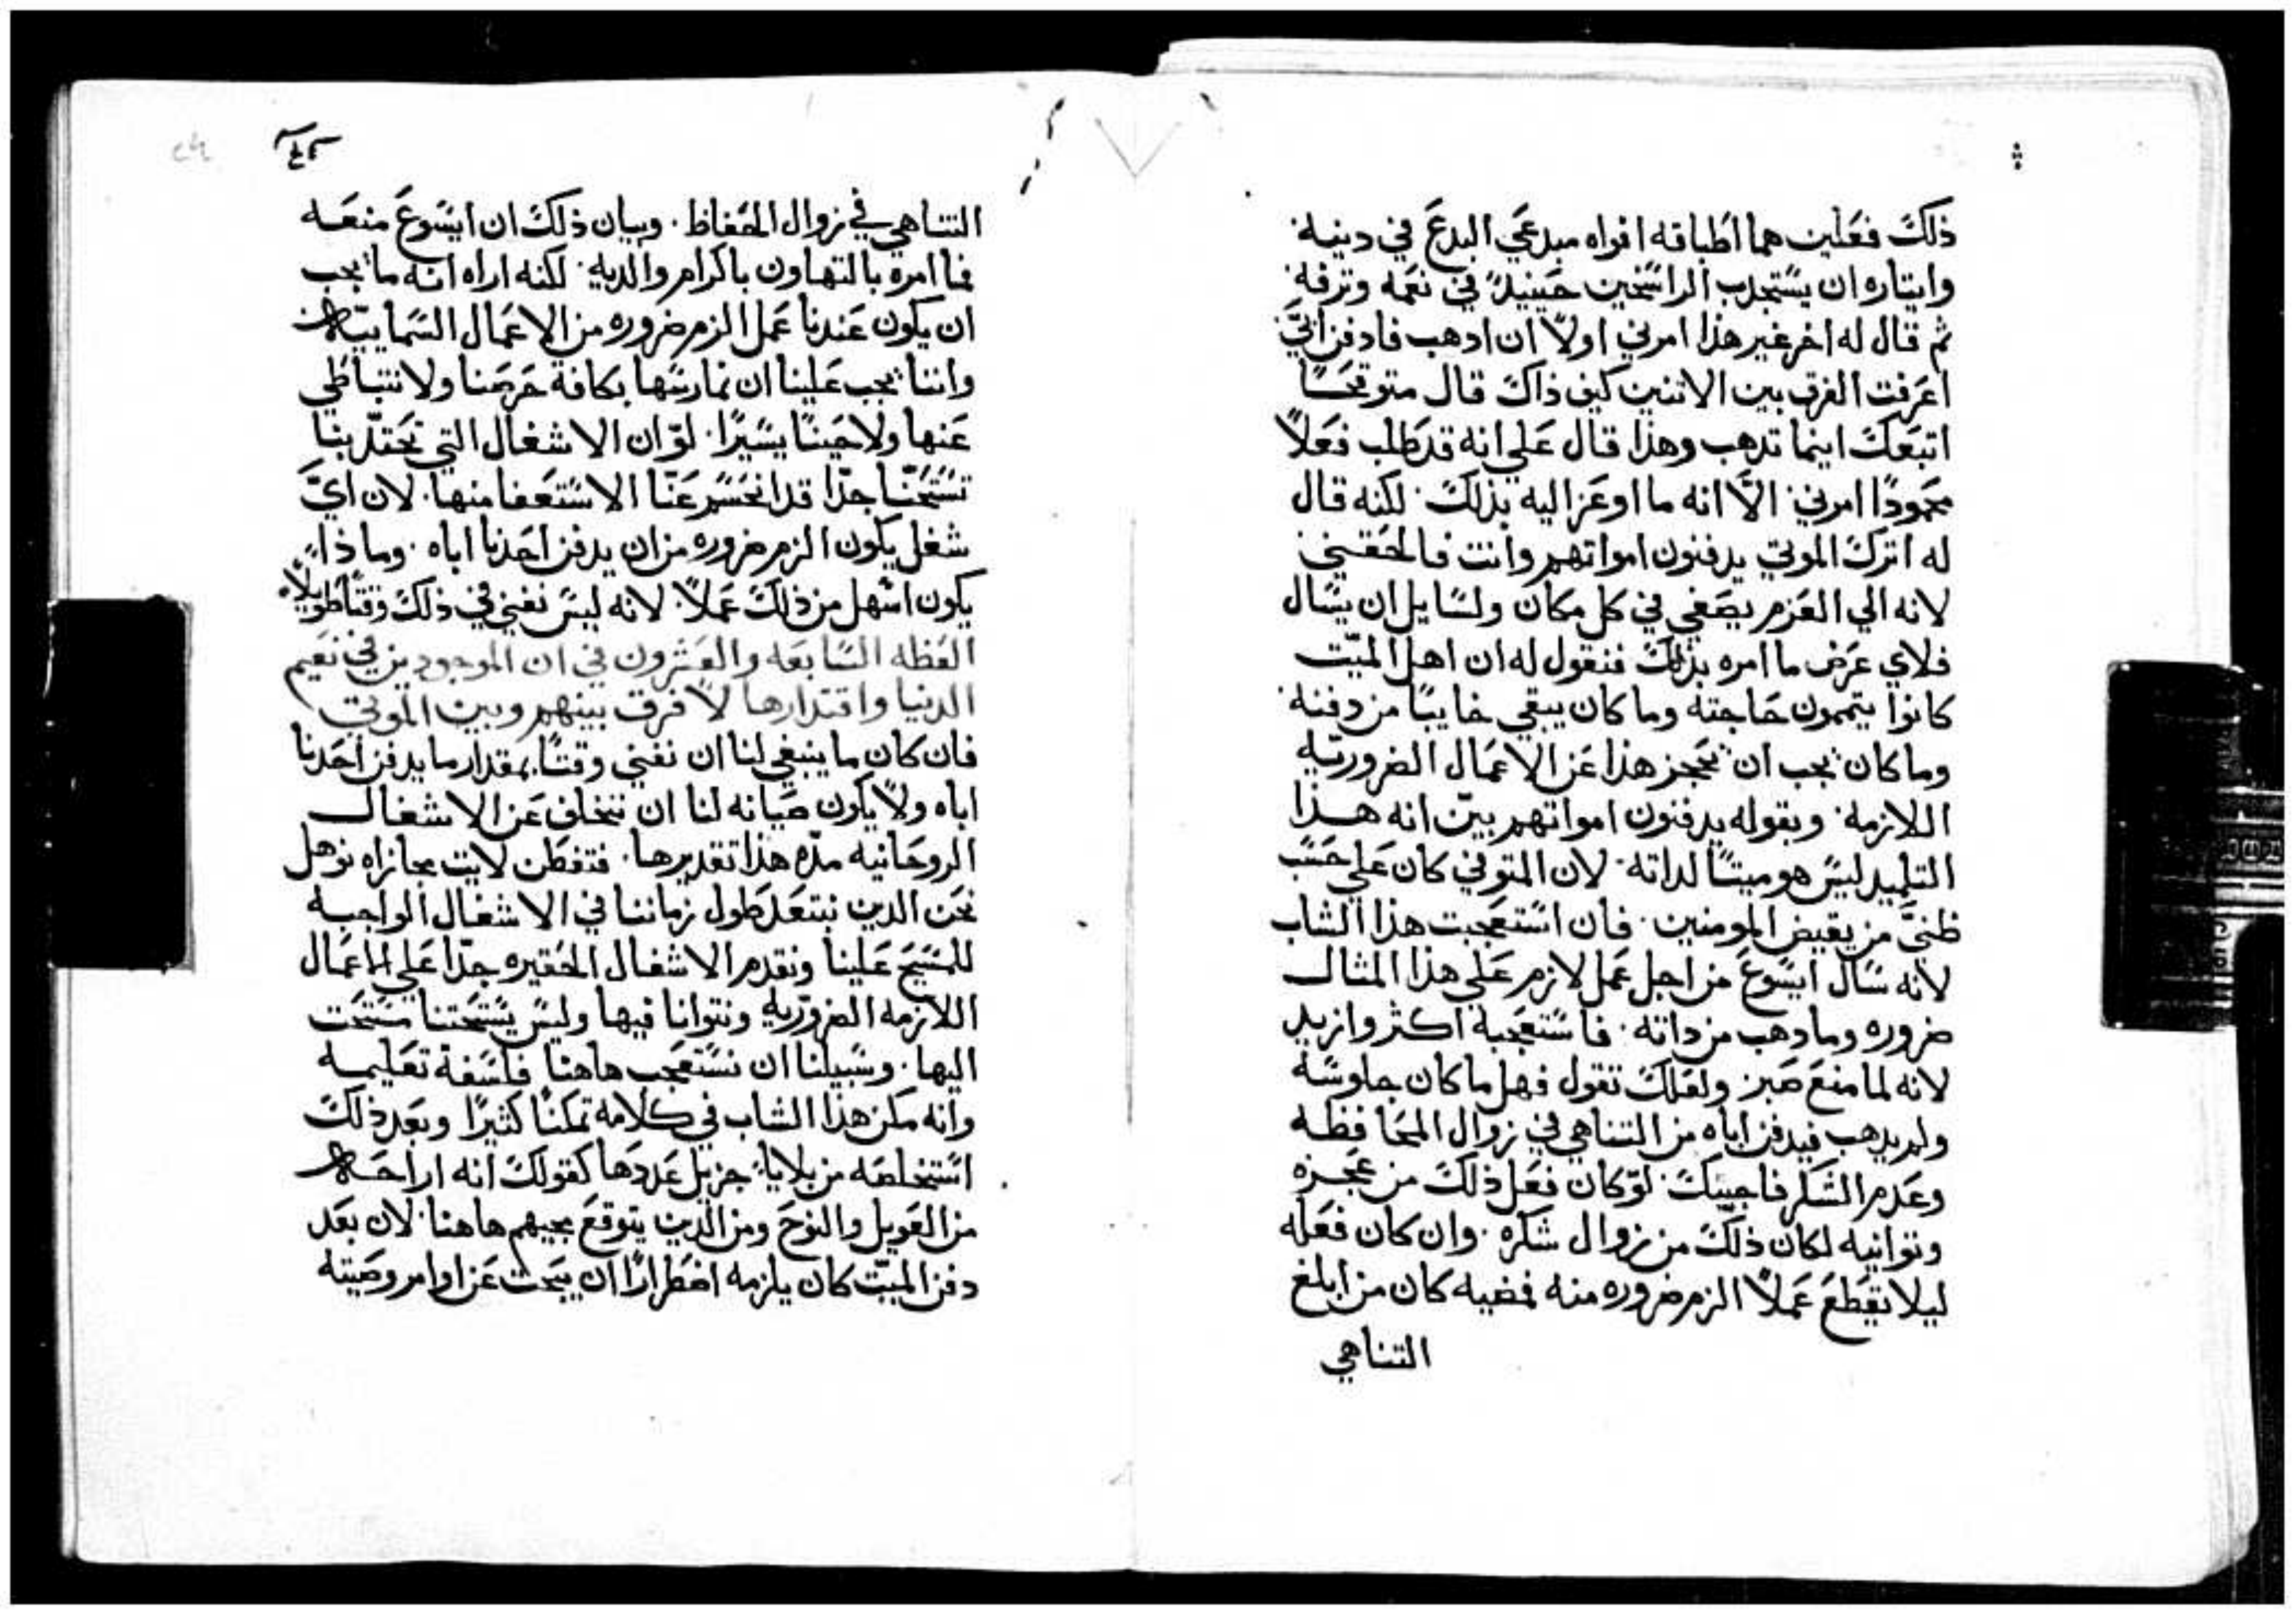 ذلك فعلين هما اطباقه افواه مبدعي البدع في دينه
وايتاره ان يستجدب الراسخين حينيدٍ في نعمه وترفه
ثم قال له اخر غير هذا امرني اولاً ان ادهب فادفن ابيَّ
اعرفت الفرق بين الاتنين كيف ذاك قال متوقحًا
اتبعك اينما تدهب وهذا قال علي انه قد طلب فعلاً
محمودًا امرني الاَّ انه ما اوعز اليه بذلك لكنه قال
له اترك الموتي يدفنون امواتهم وانت فالحقني
لانه الي العزم يصغي في كل مكان ولسايل ان يسال
فلاي غرض ما امره بذلك فنقول له ان اهل الميّت
كانوا يتممون حاجته وما كان يبقي خايبًا من دفنه
وما كان يجب ان يحجز هذا عن الاعمال الضروريّه
اللازمه وبقوله يدفنون امواتهم بيّن انه هذا
التلميد ليس هو ميتًا لداته لان المتوفي كان علي حسب
ظنيَّ من بعض المومنين فان استعجبت هذا الشاب
لانه سال ايسوع من اجل عمل لازم علي هذا المثال
ضروره وما دهب من داته فاستعجبه اكثر وازيد
لانه لما منع صبر ولعلك تقول فهل ما كان جلوسه
ولم يدهب فيدفن اباه من التناهي في زوال المحافظه
وعدم الشكر فاجيبك لو كان فعل ذلك من عجزه
وتوانيه لكان ذلك من زوال شكره وان كان فعله
ليلا يقطع عملاً الزم ضروره منه فمضيه كان من ابلغ
التناهي
التناهي في زوال الحفاظ وبيان ذلك ان ايسوع منعه
فما امره بالتهاون باكرام والديه لكنه اراه انه ما يجب
ان يكون عندنا عمل الزم ضروره من الاعمال السماييّه
واننا يجب علينا ان نمارسها بكافة حرصنا ولا نتباطي
عنها ولا حينًا يسيرًا لو ان الاشغال التي تحتدّ بنا
تستحثنا جدًا قد انحسم عنّا الاستعفا منها لان ايَّ
شغل يكون الزم ضروره من ان يدفن احدنا اباه وماذا
يكون اسهل من ذلك عملاً لانه ليس نفني في ذلك وقتًا طويلاً
العظه السابعه والعشرون في ان الموجودين في نعيم
الدنيا واقتدارها لا فرق بينهم وبين الموتي
فان كان ما ينبغي لنا ان نفني وقتًا بمقدار ما يدفن احدنا
اباه ولا يكون صيانه لنا ان نتخلف عن الاشغال
الروحانيه مدّه هذا تقديرها فتفطن لايت مجازاه نوهل
نحن الدين نبتعد طول زماننا في الاشغال الواجبه
للمسيح علينا ونقدم الاشغال الحقيره جدًا علي الاعمال
اللازمه الضروريه ونتوانا فيها وليس يستحتنا مستحت
اليها وسبيلنا ان نستعجب هاهنا فلسفة تعليمه
وانه مكن هذا الشاب في كلامه تمكنًا كثيرًا وبعد ذلك
استخلصه من بلايا جزيل عددها كقولك انه اراحه
من العويل والنوح ومن الدين يتوقع مجيهم هاهنا لان بعد
دفن الميّت كان يلزمه اضطرارًا ان يبحث عن اوامر وصيته